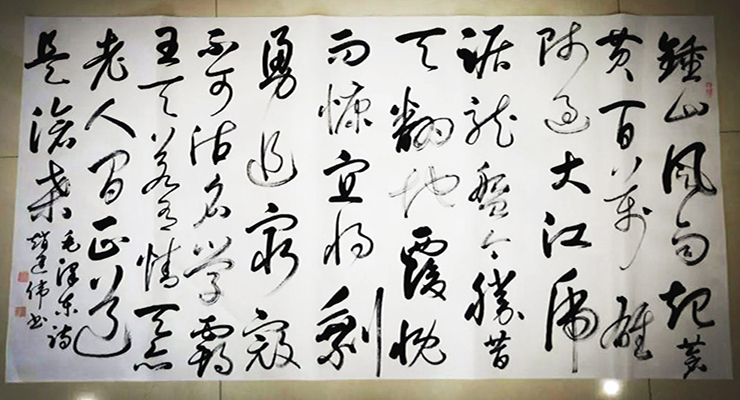 鍾山风雨起苍
黄百萬雄
师过大江虎
踞龙盤今勝昔
天翻地覆慨
而慷宜将剩
勇追窮寇
不可沽名学霸
王天若有情天亦
老人间正道
是滄桑
毛澤东诗
趙建伟书